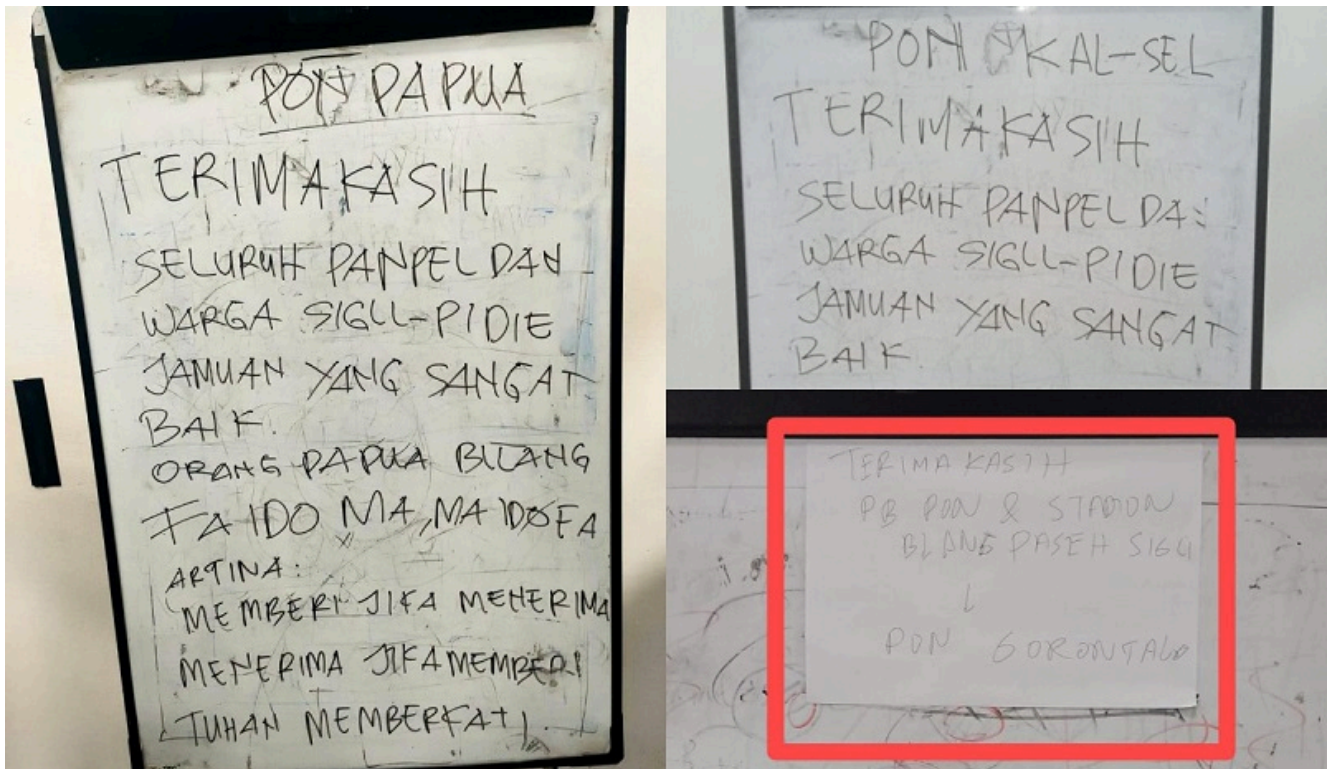 PON PAPUA
TERIMAKASIH
SELURUH PANPEL DAN
WARGA SIGLL-PIDIE
JAMUAN YANG SANGAT
BAIK.
ORANG PAPUA BILANG
FA IDO MA, MA IDO FA
ARTINA:
MEMBERI JIKA MENERIMA
MENERIMA JIKA MEMBERI
TUHAN MEMBERKATI
PON KAL-SEL
TERIMAKASIH
SELURUH PANPEL DA
WARGA SIGLL-PIDIE
JAMUAN YANG SANGAT
BAIK.
TERIMA KASIH
PB PON & STADION
BLANG PASEH SIGLI
PON GORONTALO